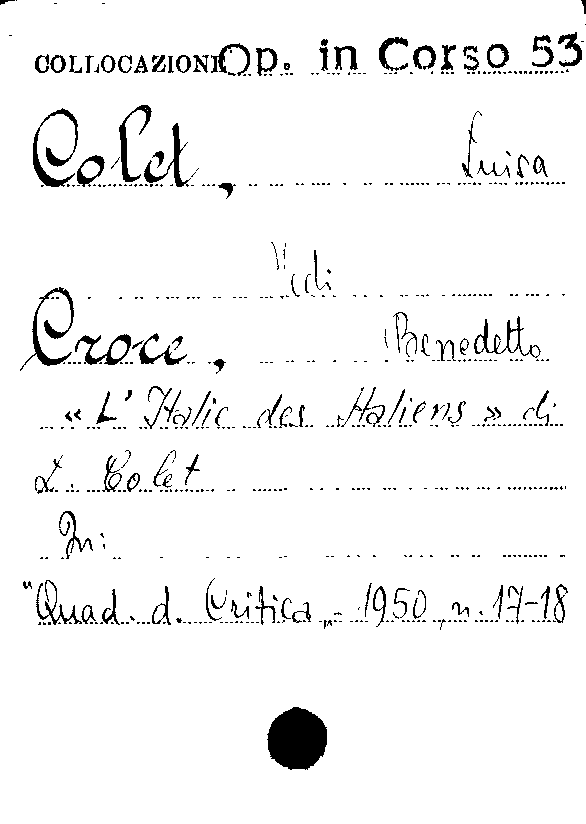 COLLOCAZIONE Op. in Corso 53
Colet, Luisa
Vedi
Croce, Benedetto
« L'Italie des Italiens » di
L. Colet
In:
"Quad. d. Critica„ - 1950, n. 17-18